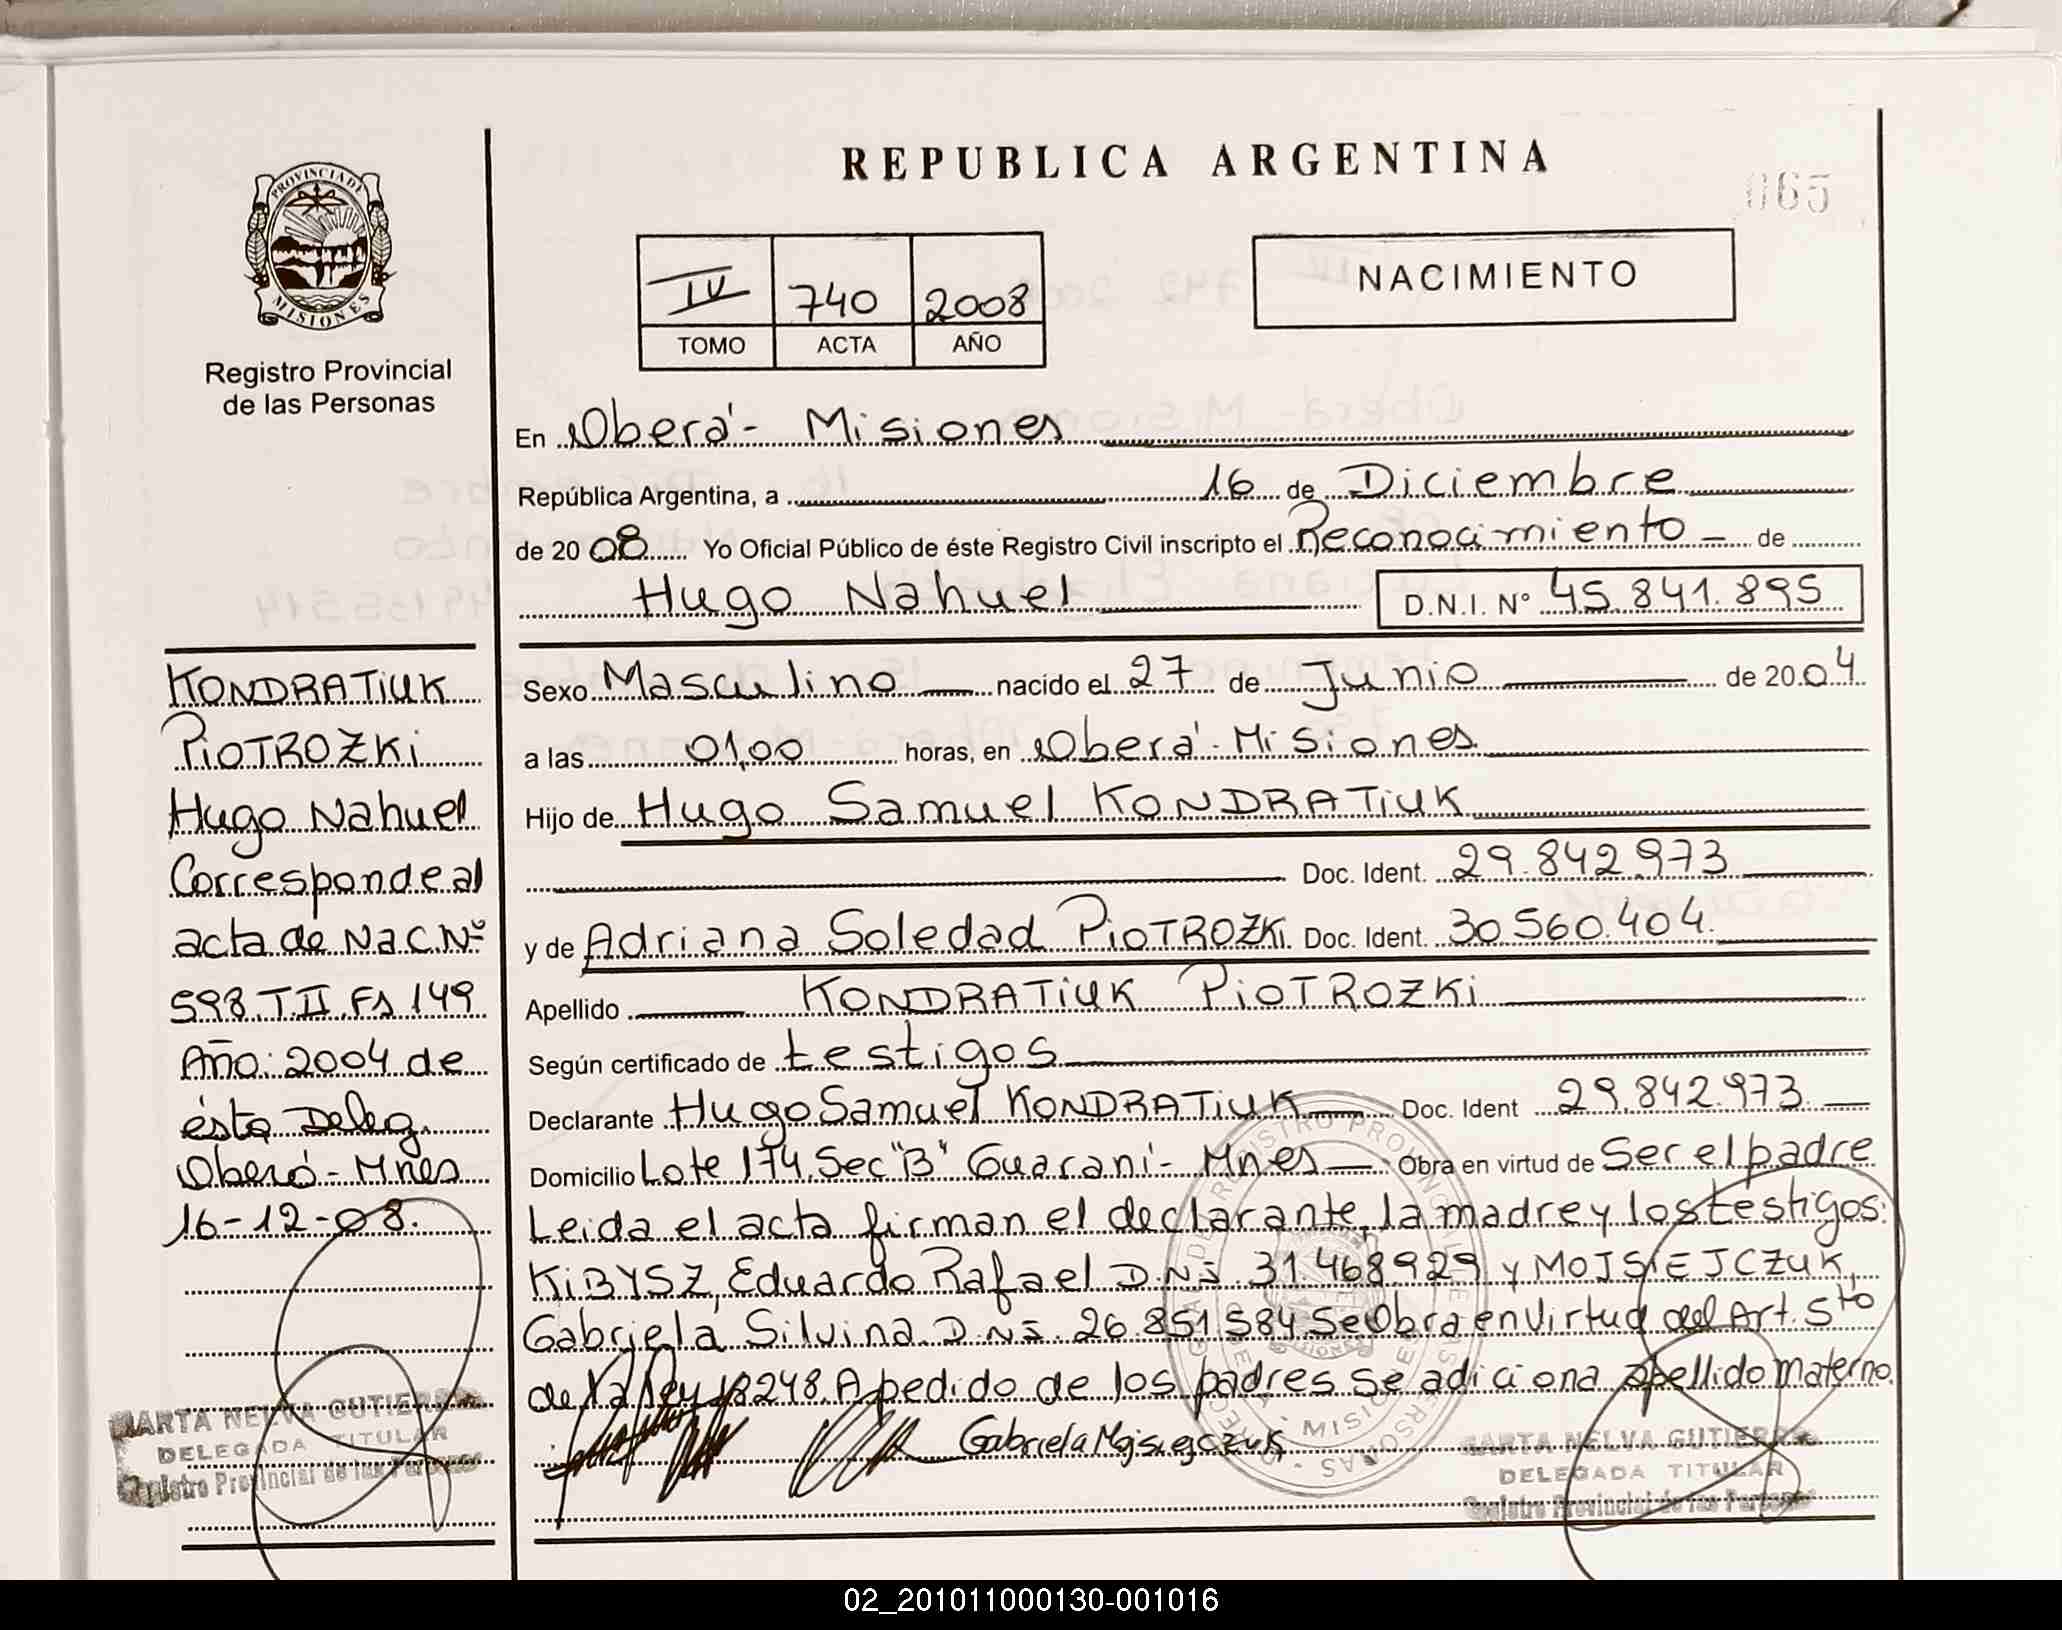 REPUBLICA ARGENTINA
065
PROVINCIA DE
MISIONES
Registro Provincial
de las Personas
IV 740 2008
TOMO ACTA AÑO
NACIMIENTO
En Oberá - Misiones
República Argentina, a 16 de Diciembre
de 20 08 Yo Oficial Público de éste Registro Civil inscripto el Reconocimiento de
Hugo Nahuel D.N.I. Nº 45.841.895
Sexo Masculino nacido el 27 de Junio de 2004
a las 01,00 horas, en Oberá - Misiones
Hijo de Hugo Samuel KONDRATiUK
Doc. Ident. 29.842.973
y de Adriana Soledad PiOTROZKi Doc. Ident. 30.560.404.
Apellido KONDRATiUK PiOTROZKi
Según certificado de testigos
Declarante Hugo Samuel KONDRATiUK Doc. Ident 29.842.973.
Domicilio Lote 174. Sec "B" Guaraní - Mnes Obra en virtud de Ser el padre
Leida el acta firman el declarante, la madre y los testigos:
KiBYSZ, Eduardo Rafael D.N.I. 31.468.929 y MOJSIEJCZUK,
Gabriela Silvina D.N.I. 26.851.584. Se Obra en Virtud del Art. 5to
de la ley 18248. A pedido de los padres se adiciona apellido materno.
Gabriela Mojsiejczuk
KONDRATiUK
PiOTROZKi
Hugo Nahuel
Corresponde al
acta de Nac. Nº
598. T. II. Fs 149
Año: 2004 de
ésta Deleg.
Oberá - Mnes
16-12-08.
MARTA NELVA GUTIERREZ
DELEGADA TITULAR
Registro Provincial de las Personas
MARTA NELVA GUTIERREZ
DELEGADA TITULAR
Registro Provincial de las Personas
02_201011000130-001016